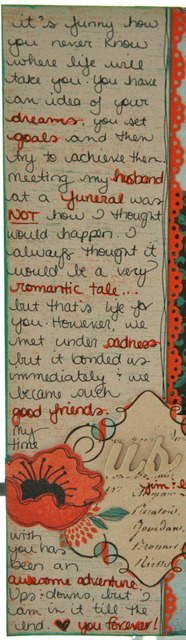 it's funny how
you never know
where life will
take you. You have
an idea of your
dreams, you set
goals and then
try to achieve them.
meeting my husband
at a funeral was
NOT how I thought
would happen. I
always thought it
would be a very
romantic tale....
but that's life for
you. However, we
met under sadness
but it bonded us
immediately & we
became such
good friends.
my
time
with
you has
been an
awesome adventure.
Ups & downs, but I
am in it till the
end. ♥ you forever!